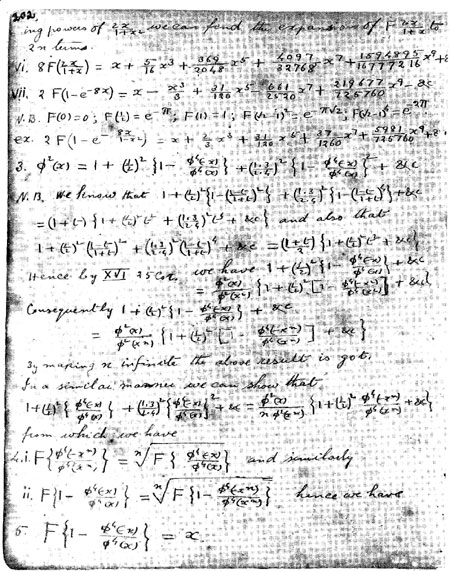 202.
ing powers of 2x/1+x² we can find the expansion of F 2x/1+x to
2n terms.
vi. 8F(2x/1+x) = x + 5/16 x³ + 369/2048 x⁵ + 4097/32768 x⁷ + 1594895/16777216 x⁹ + &
vii. 2F(1-e^-8x) = x - x³/3 + 31/120 x⁵ - 661/2520 x⁷ + 219677/725760 x⁹ - &c
N.B. F(0)=0; F(½)=e^-π; F(1)=1; F(√2-1)²=e^-π√2; F(√2-1)⁴=e^-2π.
ex. 2F(1-e^-8x/1-x²) = x + 2/3 x³ + 31/120 x⁵ + 37/1260 x⁷ + 5981/725760 x⁹ + &
3. φ²(x) = 1 + (½)² {1 - φ⁴(-x)/φ⁴(x)} + (1·3/2·4)² {1 - φ⁴(-x)/φ⁴(x)}² + &c
N.B. We know that 1 + (½)² {1-(1-t/1+t)²} + (1·3/2·4)² {1-(1-t/1+t)²}² + &c
= (1+t) {1 + (½)² t² + (1·3/2·4)² t⁴ + &c} and also that
1 + (½)² (1-t/1+t)² + (1·3/2·4)² (1-t/1+t)⁴ + &c = (1+t/2) {1 + (½)² t² + &c}
Hence by XVI 25 Cor. we have 1 + (½)² {1 - φ⁴(-x)/φ⁴(x)} + &c
= φ²(x)/φ²(x²) {1 + (½)² [1 - φ⁴(-x²)/φ⁴(x²)] + &c}
Consequently 1 + (½)² {1 - φ⁴(-x)/φ⁴(x)} + &c
= φ²(x)/φ²(xⁿ) {1 + (½)² [1 - φ⁴(-xⁿ)/φ⁴(xⁿ)] + &c}
By making n infinite the above result is got.
In a similar manner we can show that
1 + (½)² {φ⁴(-x)/φ⁴(x)} + (1·3/2·4)² {φ⁴(-x)/φ⁴(x)}² + &c = φ²(x)/n φ²(xⁿ) {1 + (½)² φ⁴(-xⁿ)/φ⁴(xⁿ) + &c}
from which we have
4. i. F{φ⁴(-xⁿ)/φ⁴(xⁿ)} = ⁿ√F{φ⁴(-x)/φ⁴(x)} and similarly
ii. F{1 - φ⁴(-x)/φ⁴(x)} = ⁿ√F{1 - φ⁴(-xⁿ)/φ⁴(xⁿ)} hence we have
5. F{1 - φ⁴(-x)/φ⁴(x)} = x.